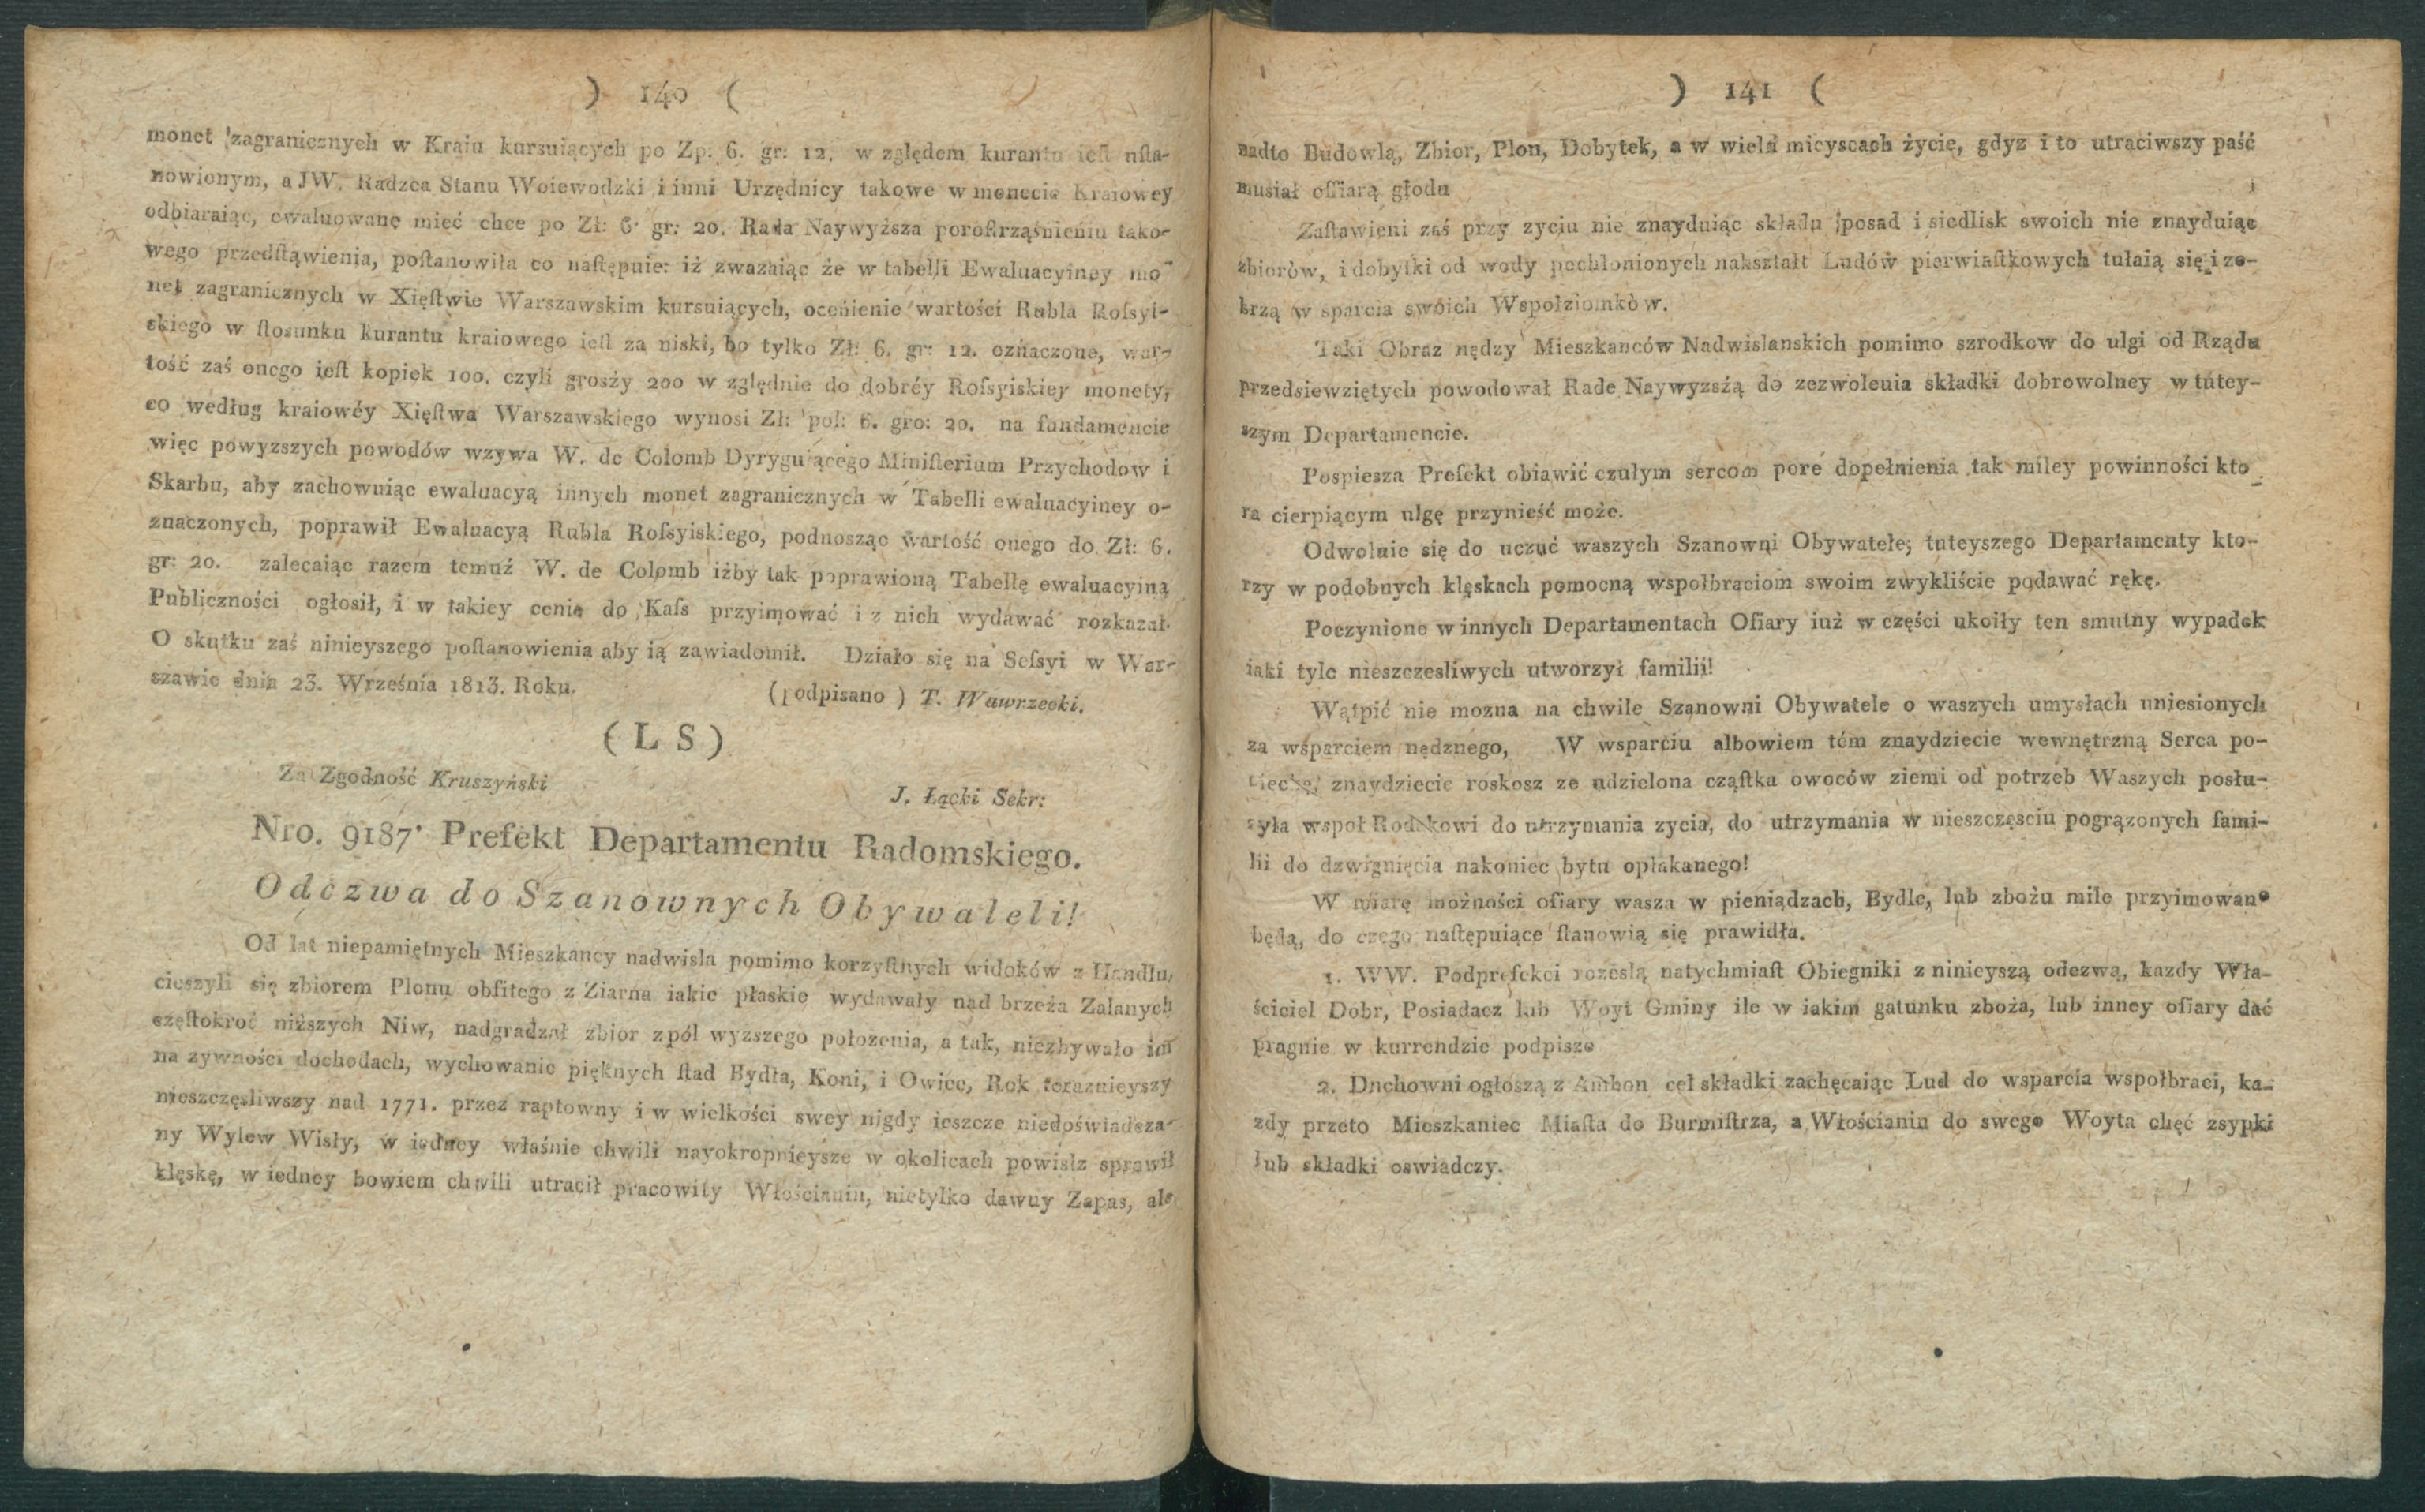 ) 140 (
monet zagranicznych w Kraiu kursuiących po Zp: 6. gr: 12. w zględem kurantu ieſt uſta-
nowionym, a JW. Radzca Stanu Woiewodzki i inni Urzędnicy takowe w monecie Kraiowey
odbiaraiąc, ewaluowane mieć chce po Zł: 6. gr: 20. Rada Naywyższa po roſtrząśnieniu tako-
wego przedſtąwienia, poſtanowiła co naſtępuie: iż zwazaiąc że w tabelli Ewaluacyiney mo-
net zagranicznych w Xięſtwie Warszawskim kursuiących, ocenienie wartości Rubla Roſsyi-
skiego w ſtosunku kurantu kraiowego ieſt za niski, bo tylko Zł: 6. gr: 12. oznaczone, war-
tość zaś onego ieſt kopiek 100. czyli groszy 200 w zględnie do dobréy Roſsyiskiey monety,
co według kraiowéy Xięſtwa Warszawskiego wynosi Zł: pol: 6. gro: 20. na fundamencie
więc powyzszych powodów wzywa W. de Colomb Dyryguiącego Miniſterium Przychodow i
Skarbu, aby zachowuiąc ewaluacyą innych monet zagranicznych w Tabelli ewaluacyiney o-
znaczonych, poprawił Ewaluacyą Rubla Roſsyiskiego, podnosząc wartość onego do Zł: 6.
gr: 20. zalecaiąc razem temuż W. de Colomb iżby tak poprawioną Tabellę ewaluacyiną
Publiczności ogłosił, i w takiey cenie do Kaſs przyimować i z nich wydawać rozkazał.
O skutku zaś ninieyszego poſtanowienia aby ią zawiadomił. Działo się na Seſsyi w War-
szawie dnia 23. Września 1813. Roku. (podpisano ) T. Wawrzecki.
( L S )
Za Zgodność Kruszyński J. Łącki Sekr:
Nro. 9187. Prefekt Departamentu Radomskiego.
Odezwa do Szanownych Obywateli!
Od lat niepamiętnych Mieszkancy nadwisla pomimo korzyſtnych widoków z Handlu,
cieszyli się zbiorem Plonu obfitego z Ziarna iakie płaskie wydawały nad brzeża Zalanych
częſtokroć niższych Niw, nadgradzał zbior z pól wyzszego położenia, a tak, niezbywało im
na zywności dochodach, wychowanie pięknych ſtad Bydła, Koni, i Owiec, Rok teraznieyszy
nieszczęsliwszy nad 1771. przez raptowny i w wielkości swey nigdy ieszcze niedoświadsza-
ny Wylew Wisły, w iedney właśnie chwili nayokropnieysze w okolicach powislz sprawił
klęskę, w iedney bowiem chwili utracił pracowity Włościanin, nietylko dawny Zapas, ale
) 141 (
nadto Budowlą, Zbior, Plon, Dobytek, a w wielu mieyscach życie, gdyz i to utraciwszy paść
musiał offiarą głodu
Zaſtawieni zaś przy zyciu nie znayduiąc składu posad i siedlisk swoich nie znayduiąc
zbiorów, i dobytki od wody pochłonionych nakształt Ludów pierwiaſtkowych tułaią się i ze-
brzą w sparcia swoich Wspołziomkòw.
Taki Obraz nędzy Mieszkanców Nadwislanskich pomimo szrodkow do ulgi od Rządu
przedsiewziętych powodował Rade Naywyzsźą do zezwolenia składki dobrowolney w tutey-
szym Departamencie.
Pospiesza Prefekt obiawić czułym sercom poré dopełnienia tak miley powinności kto-
ra cierpiącym ulgę przynieść może.
Odwołuie się do uczuć waszych Szanowni Obywatele; tuteyszego Departamenty kto-
rzy w podobnych klęskach pomocną wspołbraciom swoim zwykliście podawać rękę.
Poczynione w innych Departamentach Ofiary iuż w części ukoiły ten smutny wypadek
iaki tyle nieszczesliwych utworzył familii!
Wątpić nie mozna na chwile Szanowni Obywatele o waszych umysłach uniesionych
za wsparciem nędznego, W wsparciu albowiem tém znaydziecie wewnętrzną Serca po-
ciechę, znaydziecie roskosz ze udzielona cząſtka owoców ziemi od potrzeb Waszych posłu-
zyła wspoł Rodakowi do utrzymania zycia, do utrzymania w nieszczęsciu pogrązonych fami-
lii do dzwignięcia nakoniec bytu opłakanego!
W miarę możności ofiary wasza w pieniądzach, Bydle, lub zbożu mile przyimowane
będą, do czego naſtępuiące ſtanowią się prawidła.
1. WW. Podprefekci rozeslą natychmiaſt Obiegniki z ninieyszą odezwą, kazdy Wła-
ściciel Dobr, Posiadacz lub Woyt Gminy ile w iakim gatunku zboża, lub inney ofiary dać
pragnie w kurrendzie podpisze
2. Duchowni ogłoszą z Ambon cel składki zachęcaiąc Lud do wsparcia wspołbraci, ka-
zdy przeto Mieszkaniec Miaſta do Burmiſtrza, a Włościanin do swego Woyta chęć zsypki
lub składki oswiadczy.